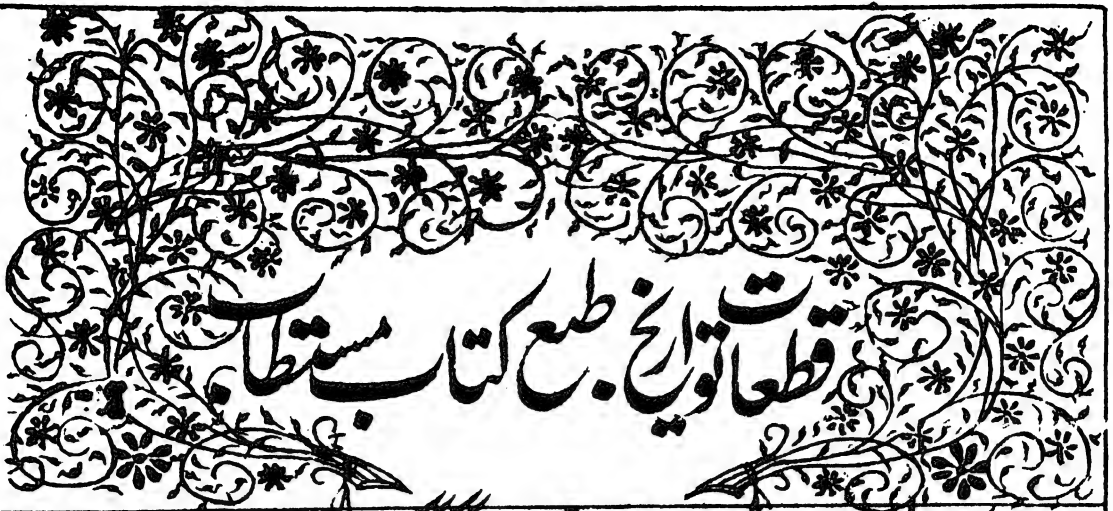 قطعات تواریخ طبع کتاب مستطاب